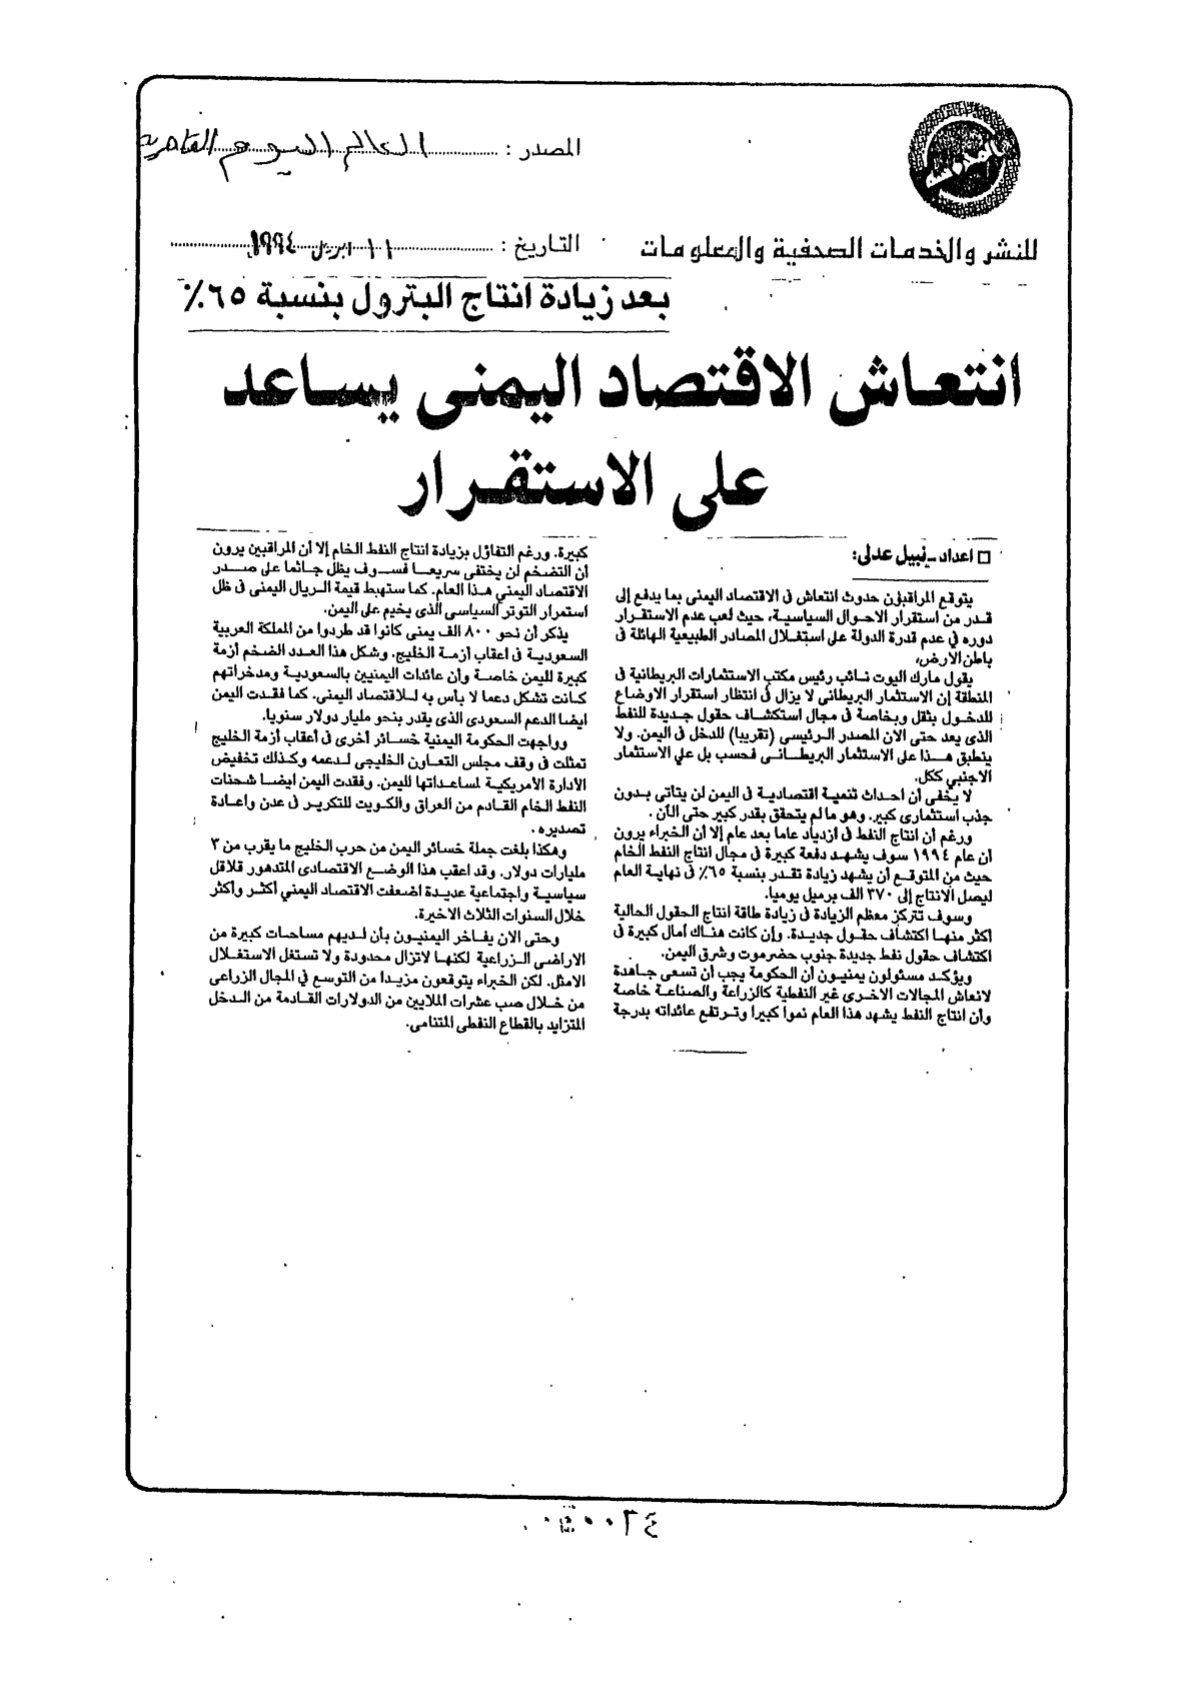 المصدر : العالم اليوم القاهرية
للنشر والخدمات الصحفية والمعلومات
التاريخ : ١١ ابريل ١٩٩٤
بعد زيادة انتاج البترول بنسبة ٦٥٪
انتعاش الاقتصاد اليمنى يساعد
على الاستقرار
□ اعداد ـ نبيل عدلى:
يتوقع المراقبون حدوث انتعاش فى الاقتصاد اليمنى بما يدفع إلى
قدر من استقرار الاحوال السياسية، حيث لعب عدم الاستقرار
دوره في عدم قدرة الدولة على استغلال المصادر الطبيعية الهائلة فى
باطن الارض،
يقول مارك اليوت نائب رئيس مكتب الاستثمارات البريطانية فى
المنطقة إن الاستثمار البريطانى لا يزال فى انتظار استقرار الاوضاع
للدخول بثقل وبخاصة فى مجال استكشاف حقول جديدة للنفط
الذى يعد حتى الان المصدر الرئيسى (تقريبا) للدخل فى اليمن. ولا
ينطبق هذا على الاستثمار البريطانى فحسب بل على الاستثمار
الاجنبي ككل.
لا يخفى أن احداث تنمية اقتصادية فى اليمن لن يتاتى بدون
جذب استثمارى كبير. وهو مالم يتحقق بقدر كبير حتى الآن .
ورغم أن انتاج النفط فى ازدياد عاما بعد عام إلا أن الخبراء يرون
أن عام ١٩٩٤ سوف يشهد دفعة كبيرة فى مجال انتاج النفط الخام
حيث من المتوقع أن يشهد زيادة تقدر بنسبة ٦٥٪ فى نهاية العام
ليصل الانتاج إلى ٣٧٠ الف برميل يوميا.
وسوف تتركز معظم الزيادة فى زيادة طاقة انتاج الحقول الحالية
اكثر منها اكتشاف حقول جديدة. وإن كانت هناك أمال كبيرة فى
اكتشاف حقول نفط جديدة جنوب حضرموت وشرق اليمن.
ويؤكد مسئولون يمنيون أن الحكومة يجب أن تسعى جاهدة
لانعاش المجالات الاخرى غير النفطية كالزراعة والصناعة خاصة
وأن انتاج النفط يشهد هذا العام نموا كبيرا وترتفع عائداته بدرجة
كبيرة. ورغم التفاؤل بزيادة انتاج النفط الخام إلا أن المراقبين يرون
أن التضخم لن يختفى سريعا فسوف يظل جاثما على صدر
الاقتصاد اليمني هذا العام. كما ستهبط قيمة الريال اليمنى فى ظل
استمرار التوتر السياسى الذى يخيم على اليمن.
يذكر أن نحو ٨٠٠ الف يمنى كانوا قد طردوا من المملكة العربية
السعودية فى اعقاب أزمة الخليج. وشكل هذا العدد الضخم أزمة
كبيرة لليمن خاصة وأن عائدات اليمنيين بالسعودية ومدخراتهم
كانت تشكل دعما لا باس به للاقتصاد اليمنى. كما فقدت اليمن
ايضا الدعم السعودى الذى يقدر بنحو مليار دولار سنويا.
وواجهت الحكومة اليمنية خسائر أخرى فى أعقاب أزمة الخليج
تمثلت فى وقف مجلس التعاون الخليجى لدعمه وكذلك تخفيض
الأدارة الأمريكية لمساعداتها لليمن. وفقدت اليمن ايضا شحنات
النفط الخام القادم من العراق والكويت للتكرير فى عدن واعادة
تصديره .
وهكذا بلغت جملة خسائر اليمن من حرب الخليج ما يقرب من ٣
مليارات دولار. وقد اعقب هذا الوضع الاقتصادى المتدهور قلاقل
سياسية واجتماعية عديدة اضعفت الاقتصاد اليمني أكثر وأكثر
خلال السنوات الثلاث الاخيرة.
وحتى الان يفاخر اليمنيون بأن لديهم مساحات كبيرة من
الاراضى الزراعية لكنها لاتزال محدودة ولا تستغل الاستغلال
الامثل. لكن الخبراء يتوقعون مزيدا من التوسع في المجال الزراعى
من خلال صب عشرات الملايين من الدولارات القادمة من الدخل
المتزايد بالقطاع النفطى المتنامى.